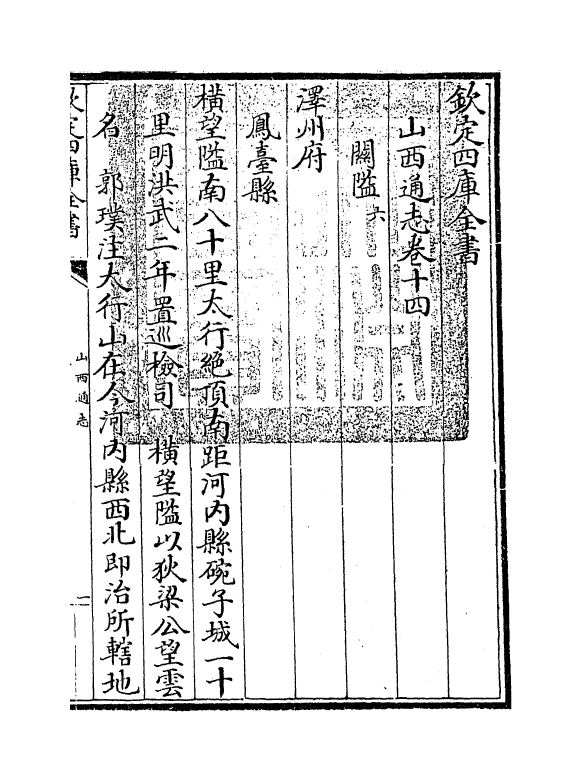 欽定四庫全書
山西通志卷十四
關隘六
澤州府
鳳臺縣
橫望隘南八十里太行絶頂南距河内縣碗子城一十
里明洪武二年置巡檢司　橫望隘以狄梁公望雲
名　郭璞注太行山在今河内縣西北即治所轄地
欽定四庫全書
山西通志